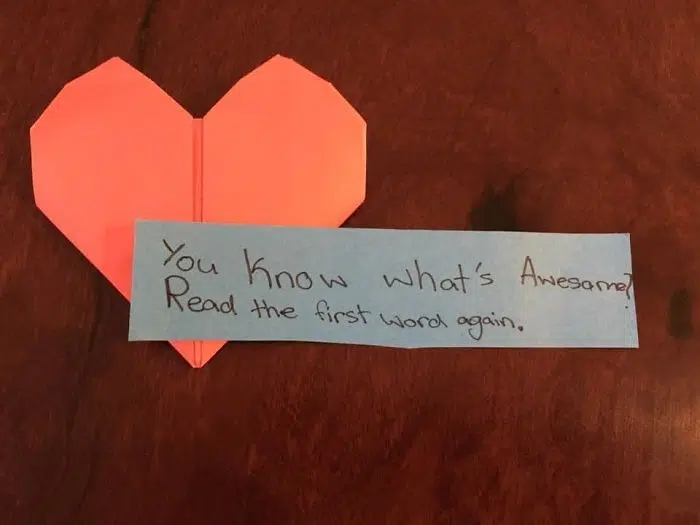 You Know what's Awesome?
Read the first word again.